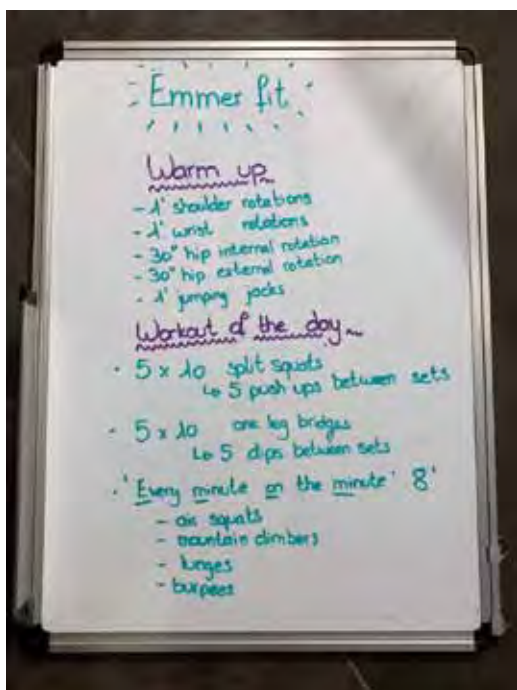 Emmer fit
Warm up
- 1' shoulder rotations
- 1' wrist rotations
- 30" hip internal rotation
- 30" hip external rotation
- 1' jumping jacks
Workout of the day
• 5 x 10 split squats
↳ 5 push ups between sets
• 5 x 10 one leg bridges
↳ 5 dips between sets
• 'Every minute on the minute' 8'
- air squats
- mountain climbers
- lunges
- burpees